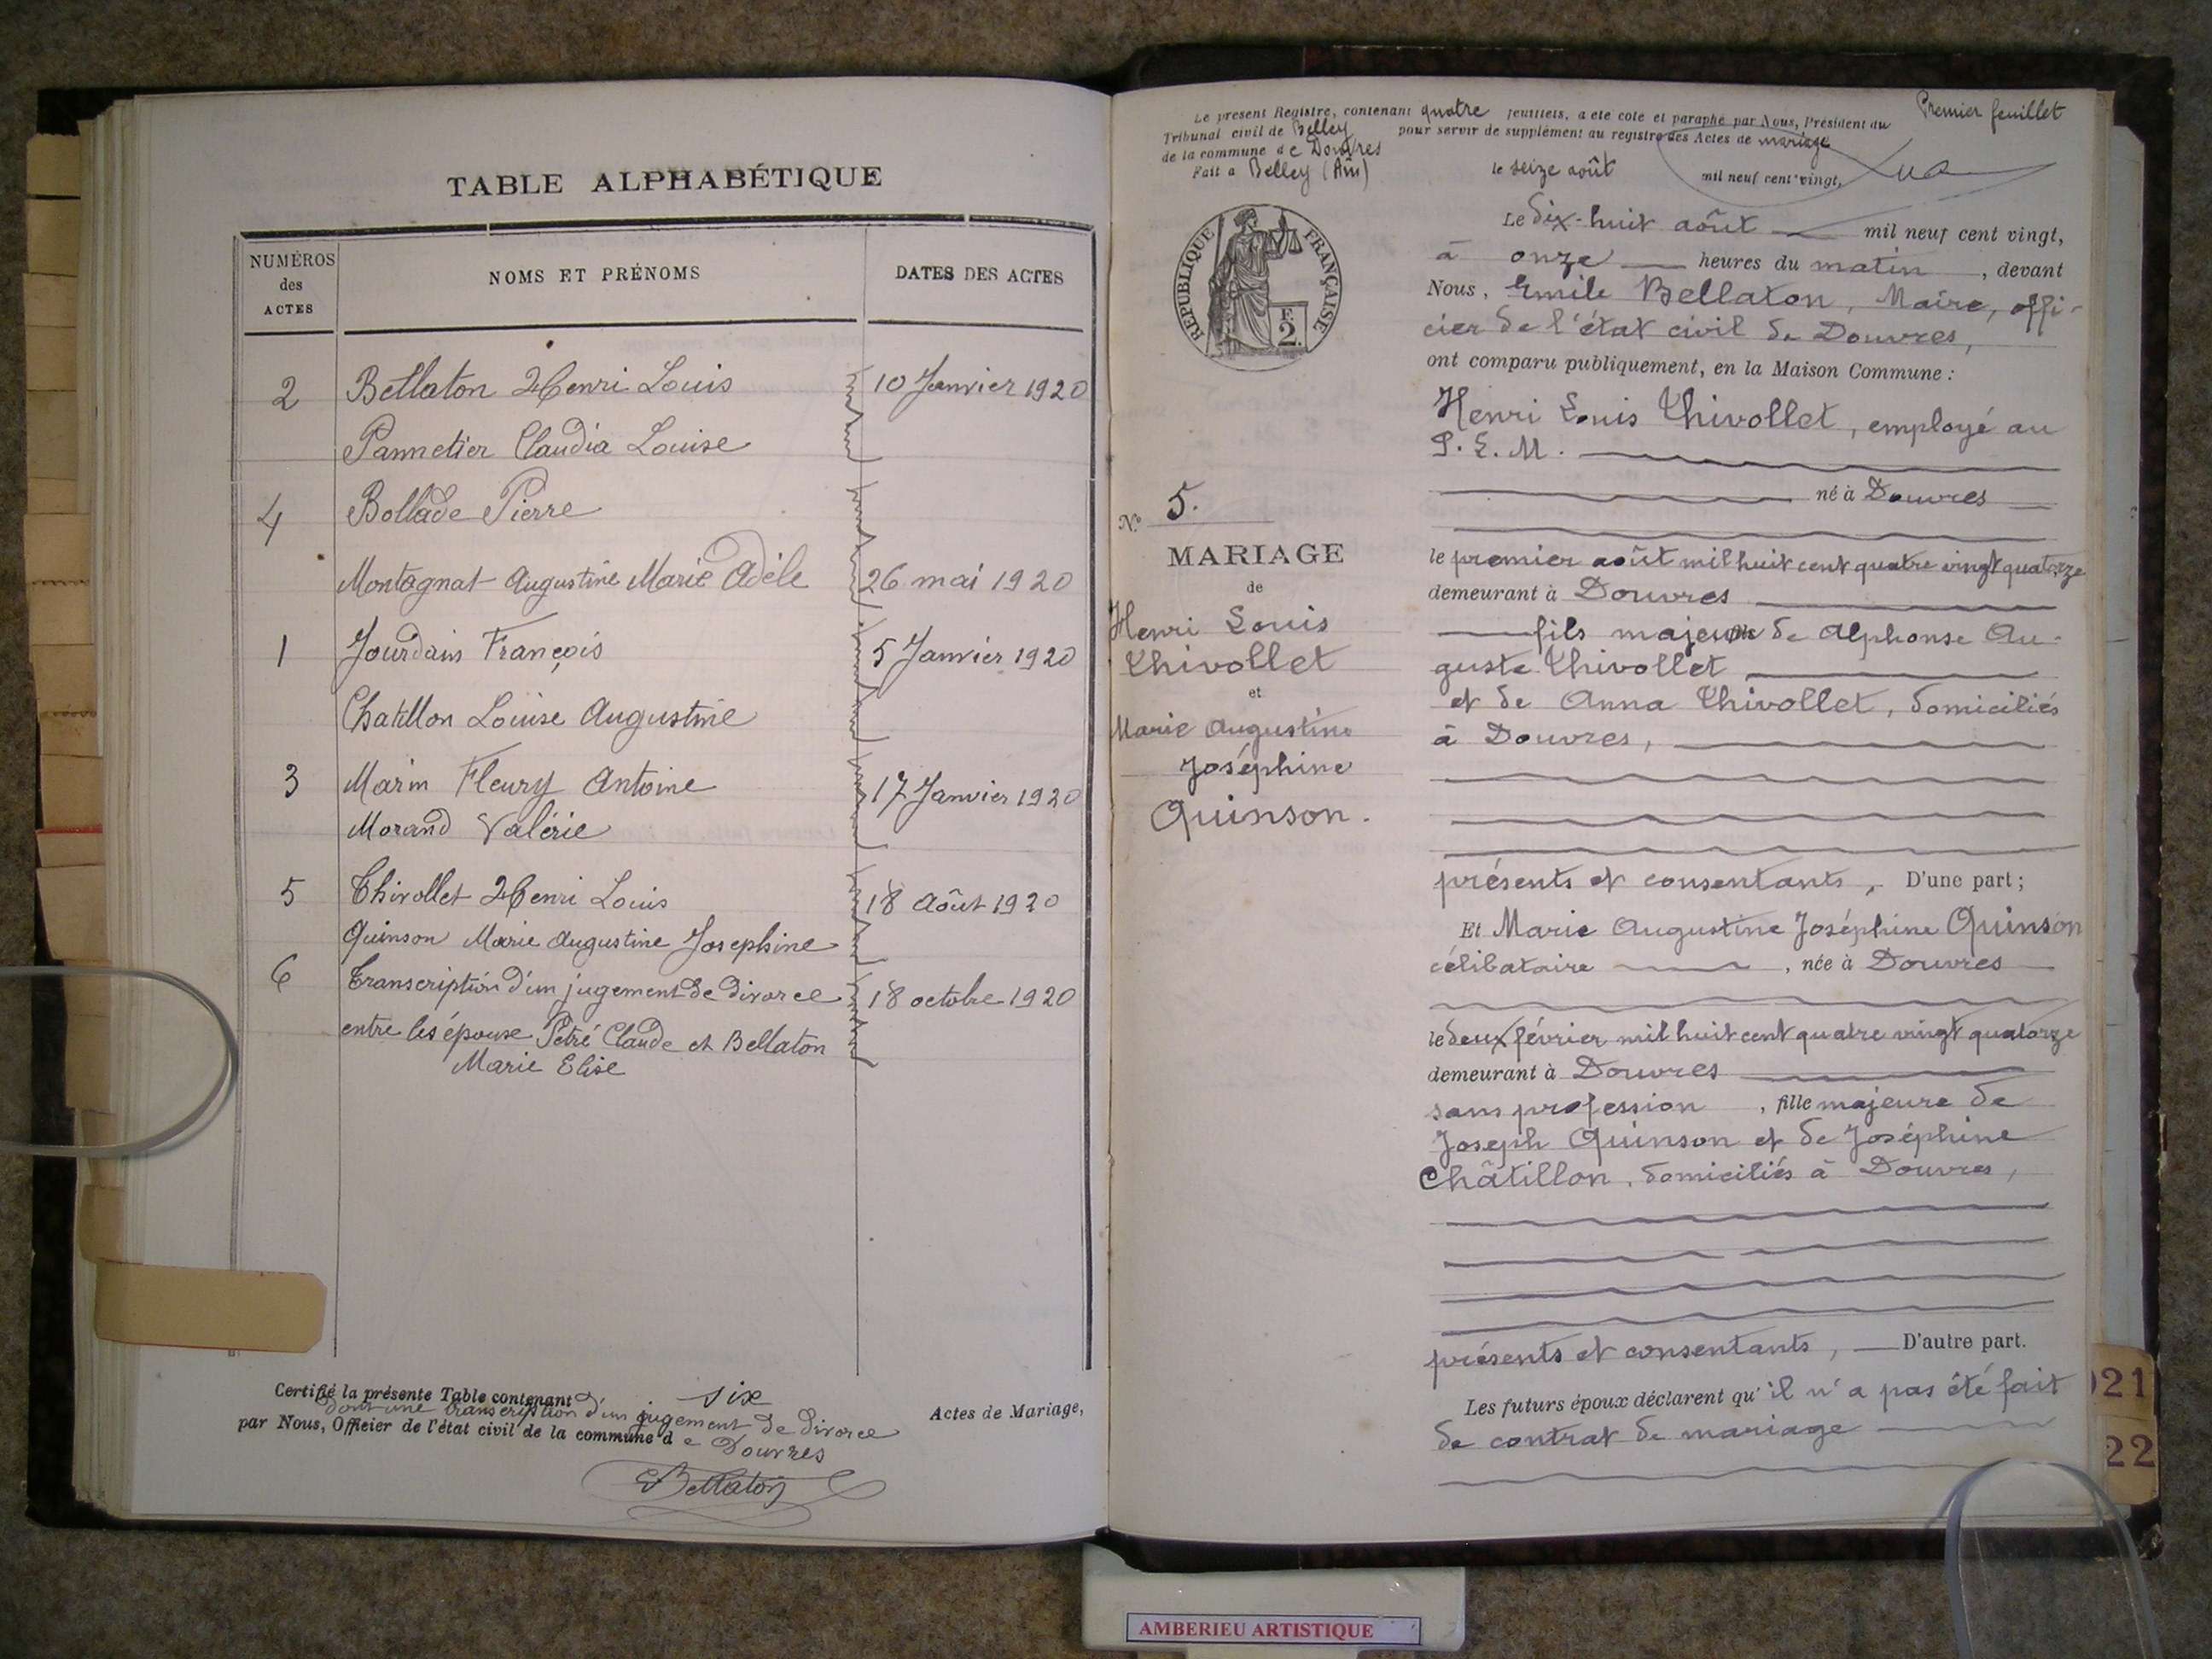 TABLE ALPHABÉTIQUE
NUMÉROS des ACTES
NOMS ET PRÉNOMS
DATES DES ACTES
2 Bellaton Henri Louis 10 Janvier 1920
Pannetier Claudia Louise
4 Bollade Pierre
Montagnat Augustine Marie Adèle 26 mai 1920
1 Jourdain François 5 Janvier 1920
Chatillon Louise Augustine
3 Marin Fleury Antoine 17 Janvier 1920
Morand Valérie
5 Thivollet Henri Louis 18 Août 1920
Quinson Marie Augustine Josephine
6 Transcription d'un jugement de divorce 18 octobre 1920
entre les épouse Petré Claude et Bellaton
Marie Elise
Certifié la présente Table contenant six Actes de Mariage,
dont une transcription d'un jugement de divorce
par Nous, Officier de l'état civil de la commune de Douvres
EBellaton
Premier feuillet
Le présent Registre, contenant quatre feuillets, a été coté et paraphé par Nous, Président du
Tribunal civil de Belley pour servir de supplément au registre des Actes de mariage
de la commune de Douvres
Fait à Belley (Ain) le seize août mil neuf cent vingt,
RÉPUBLIQUE FRANÇAISE
F.
2.
Le dix-huit août mil neuf cent vingt,
à onze heures du matin, devant
Nous, Emile Bellaton, Maire, offi-
cier de l'état civil de Douvres,
ont comparu publiquement, en la Maison Commune :
Henri Louis Thivollet, employé au
P.L.M.
né à Douvres
le premier août mil huit cent quatre vingt quatorze
demeurant à Douvres
fils majeur de Alphonse Au-
guste Thivollet
et de Anna Thivollet, domiciliés
à Douvres,
présents et consentants, D'une part ;
Et Marie Augustine Joséphine Quinson
célibataire, née à Douvres
le deux février mil huit cent quatre vingt quatorze
demeurant à Douvres
sans profession, fille majeure de
Joseph Quinson et de Joséphine
Châtillon, domiciliés à Douvres,
présents et consentants, D'autre part.
Les futurs époux déclarent qu'il n'a pas été fait
de contrat de mariage
N° 5.
MARIAGE
de
Henri Louis
Thivollet
et
Marie Augustine
Joséphine
Quinson.
21
22
AMBERIEU ARTISTIQUE